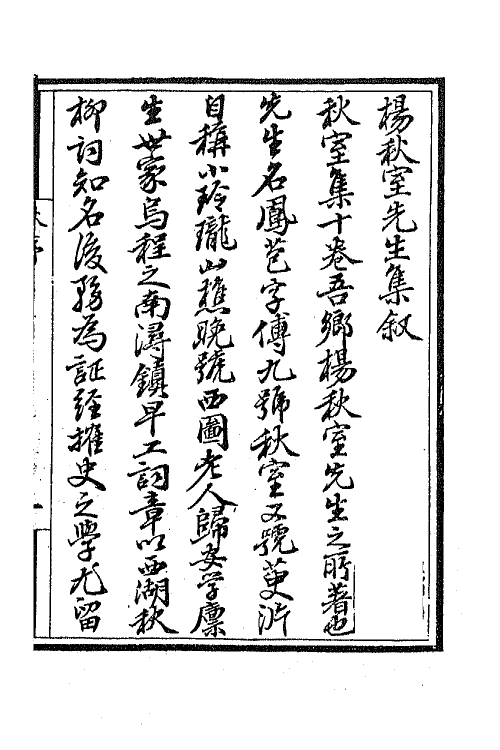 楊秋室先生集叙
秋室集十卷吾鄉楊秋室先生之所著也
先生名鳳苞字傅九號秋室又號萸沜
自稱小玲瓏山樵晚號西圃老人歸安學廩
生世家烏程之南潯鎮早工詞章以西湖秋
柳詞知名後務為証經搉史之學尤留